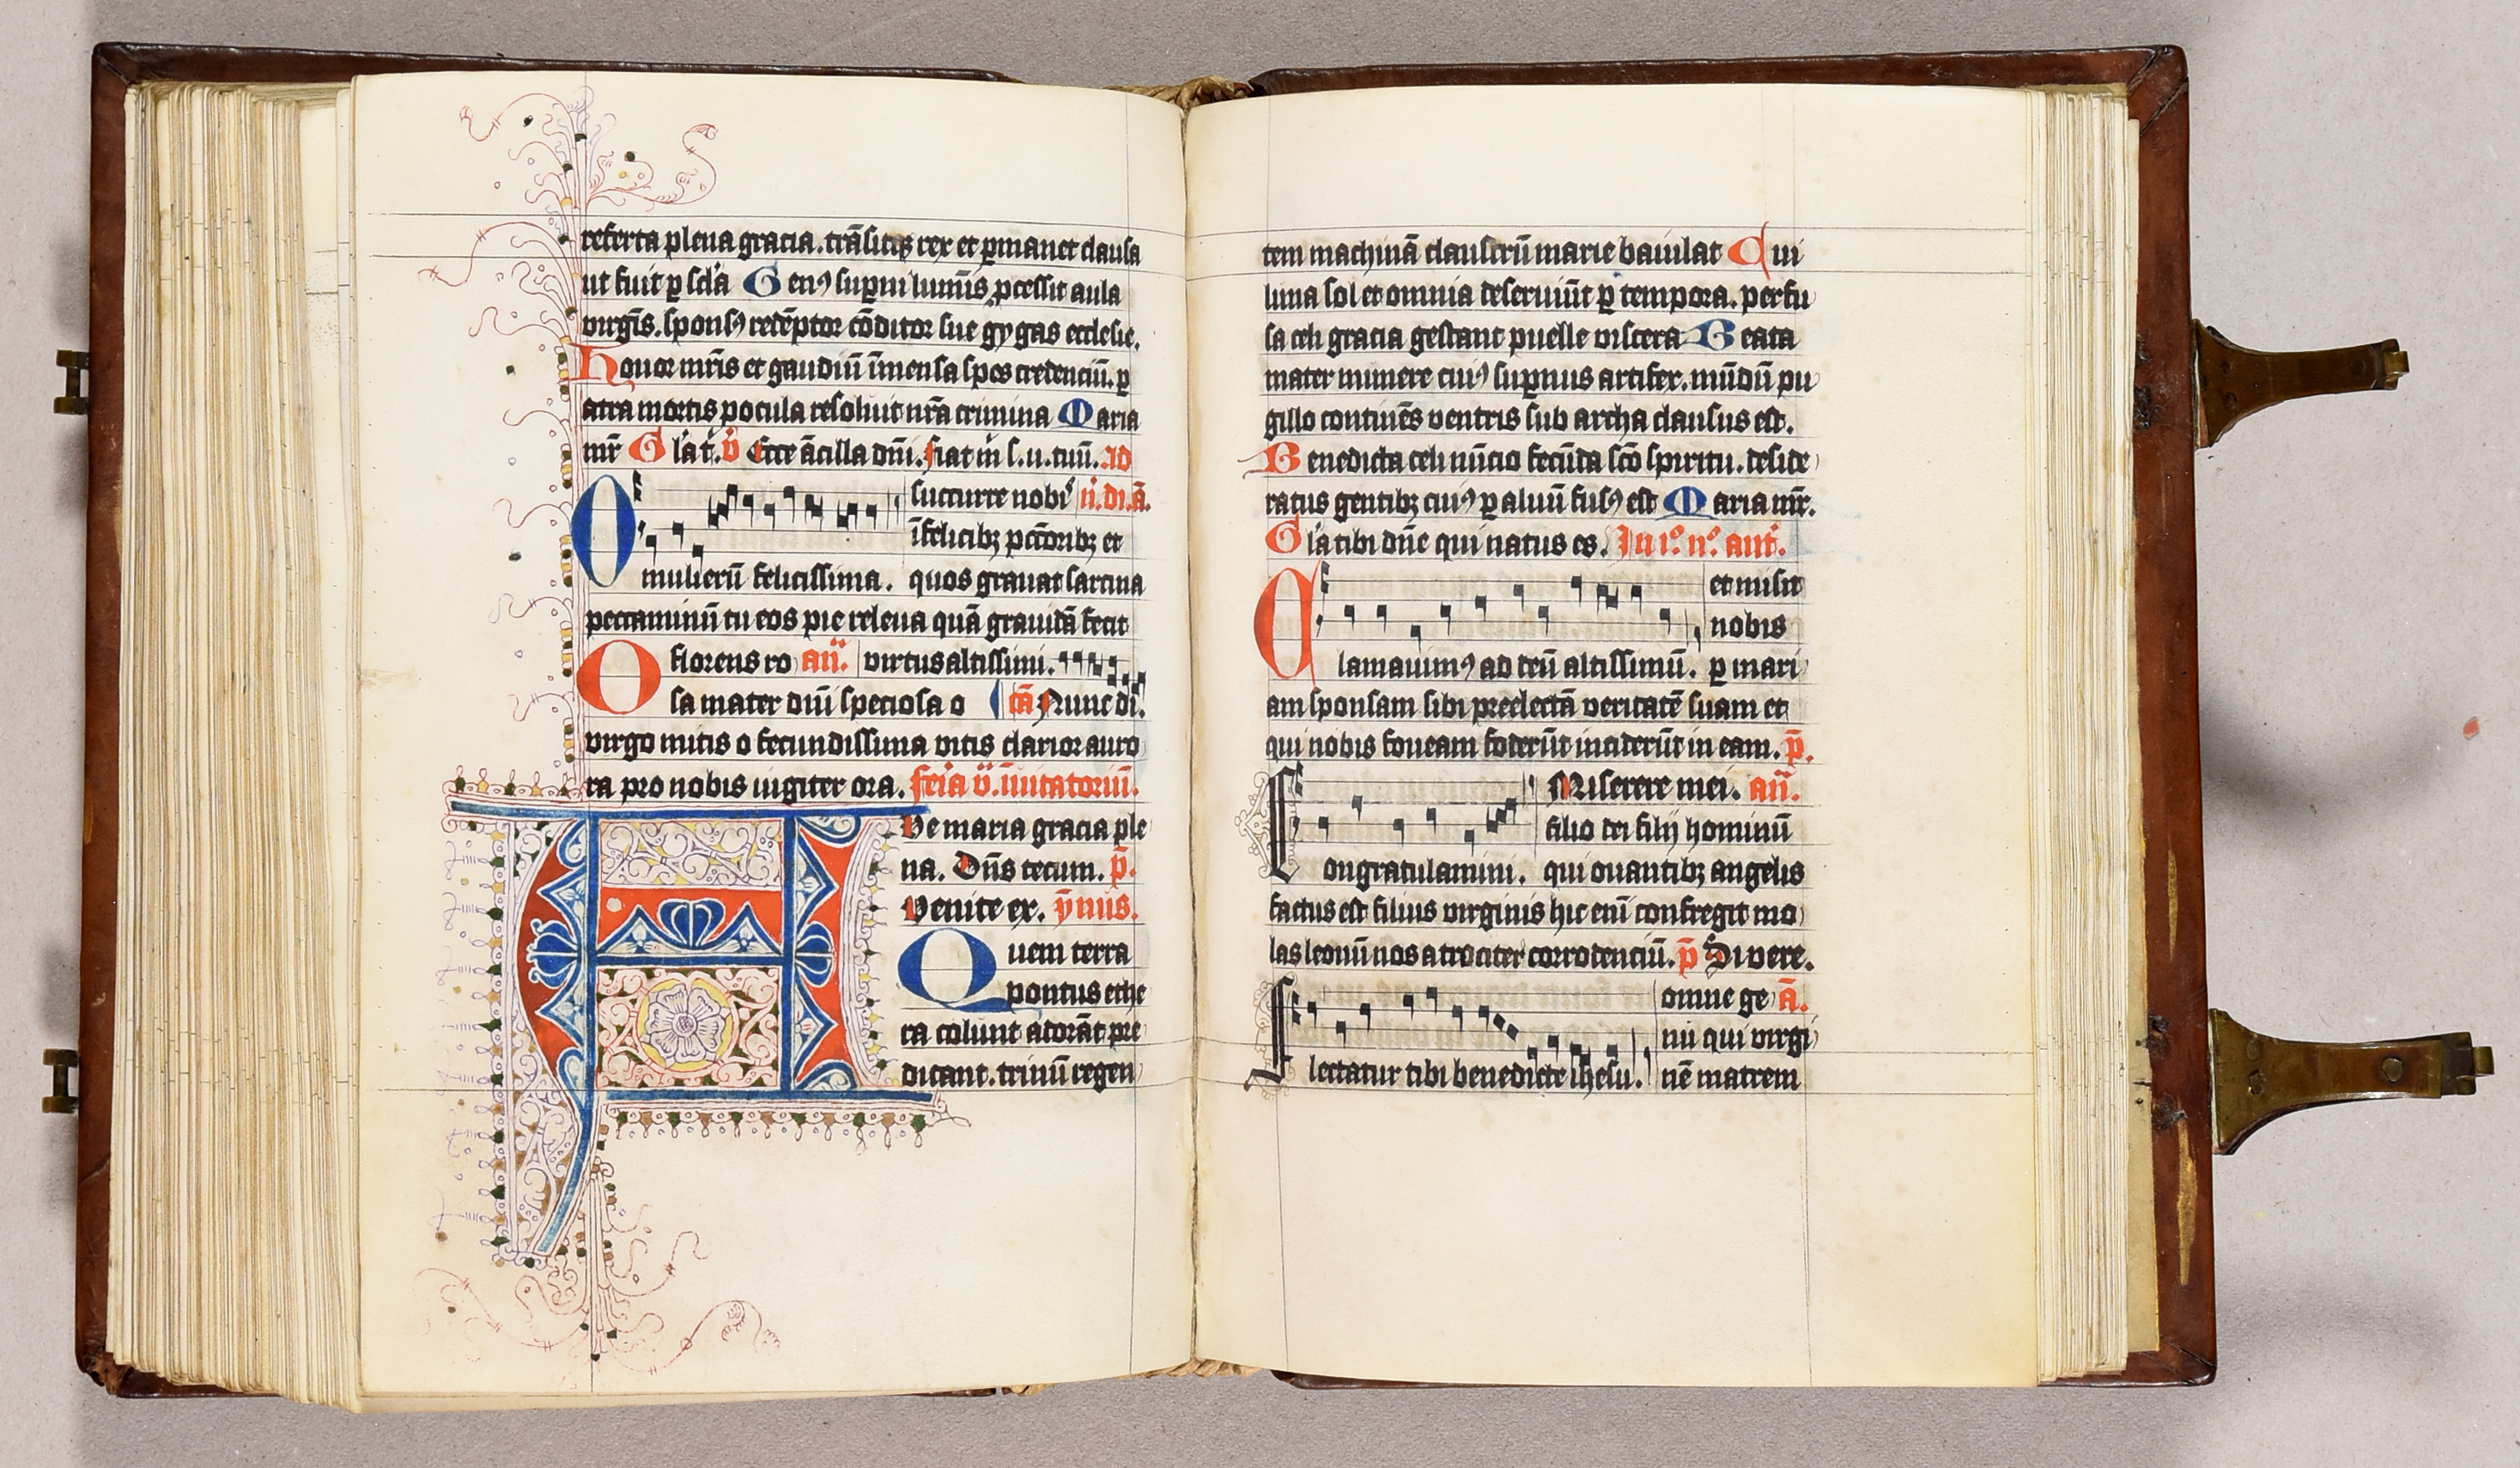 referta plena gracia. trāsitq; rex et ꝑmanet clausa
ut fuit ꝑ scl̄a Genꝰ suꝑni luminīs ꝓcessit aula
virgīs. sponsꝰ redēptor cōditor sue gygas ecclesie.
Honor mr̄is et gaudiū īmensa spes credenciū. ꝑ
atra mortis pocula resoluit nr̄a crimina Maria
mr̄ Gl̄a t. v̄ Ecce ācilla dn̄i. fiat m̄ s. u. tuū. Ad
succurre nobiˢ n̄. di. ā.
īfelicibꝫ pctōribꝫ et
O mulierū felicissima. quos grauat sarcina
peccaminū tu eos pie releua quā grauidā fecit
O florens ro an̄. virtus altissimi.
sa mater dn̄i speciosa o cā Nunc di.
virgo mitis o fecundissima vitis clarior auro
ra pro nobis iugiter ora. feīa v. īuitatoriū.
AVe maria gracia ple
na. Dn̄s tecum. p̄.
Venite ex. ȳnus.
Quem terra
pontus ethe
ra colunt adorāt pre
dicant. trinū regen
tem machinā claustrū marie baiulat Cui
luna sol et omnia deseruiūt ꝑ tempora. perfu
sa celi gracia gestant puelle viscera Beata
mater munere cuiꝰ suꝑnus artifex. mūdū pu
gillo continēs ventris sub archa clausus est.
Benedicta celi nūcio fecūda scō spiritu. deside
ratus gentibꝫ cuiꝰ ꝑ aluū fusꝰ est Maria mr̄.
Gl̄a tibi dn̄e qui natus es. In iº. nº. ant̄.
et misit
nobis
Clamauimꝰ ad deū altissimū. ꝑ mari
am sponsam sibi preelectā veritatē suam et
qui nobis foueam foderūt inciderūt in eam. p̄.
Miserere mei. an̄.
filio dei filij hominū
Congratulamini. qui ouantibꝫ angelis
factus est filius virginis hic eni̅ confregit mo
las leonū nos atrociter corrodenciū. p̄ Si vere.
omne ge ā.
nu qui virgi
Flectatur tibi benedicte ihesu. nē matrem